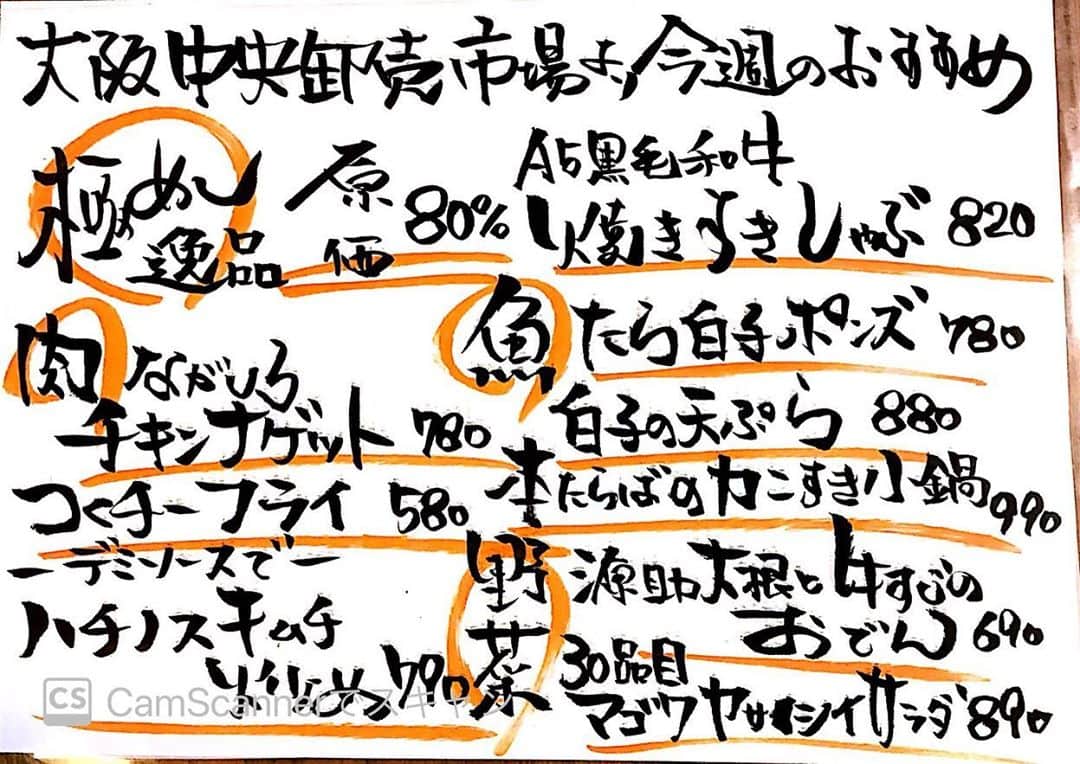 大阪中央卸売市場より今週のおすすめ
極めし逸品 原価80%
A5黒毛和牛
焼きすきしゃぶ 820
肉 ながいも
チキンナゲット 780
つくチーフライ 580
ーデミソースでー
ハチノスキムチ
790
魚 たら白子ポンズ 780
白子の天ぷら 880
本たらばのカニすき小鍋 990
野菜 源助大根と牛すじの
おでん 690
30品目
マゴワヤサイシイサラダ 890
CS CamScannerでスキャン